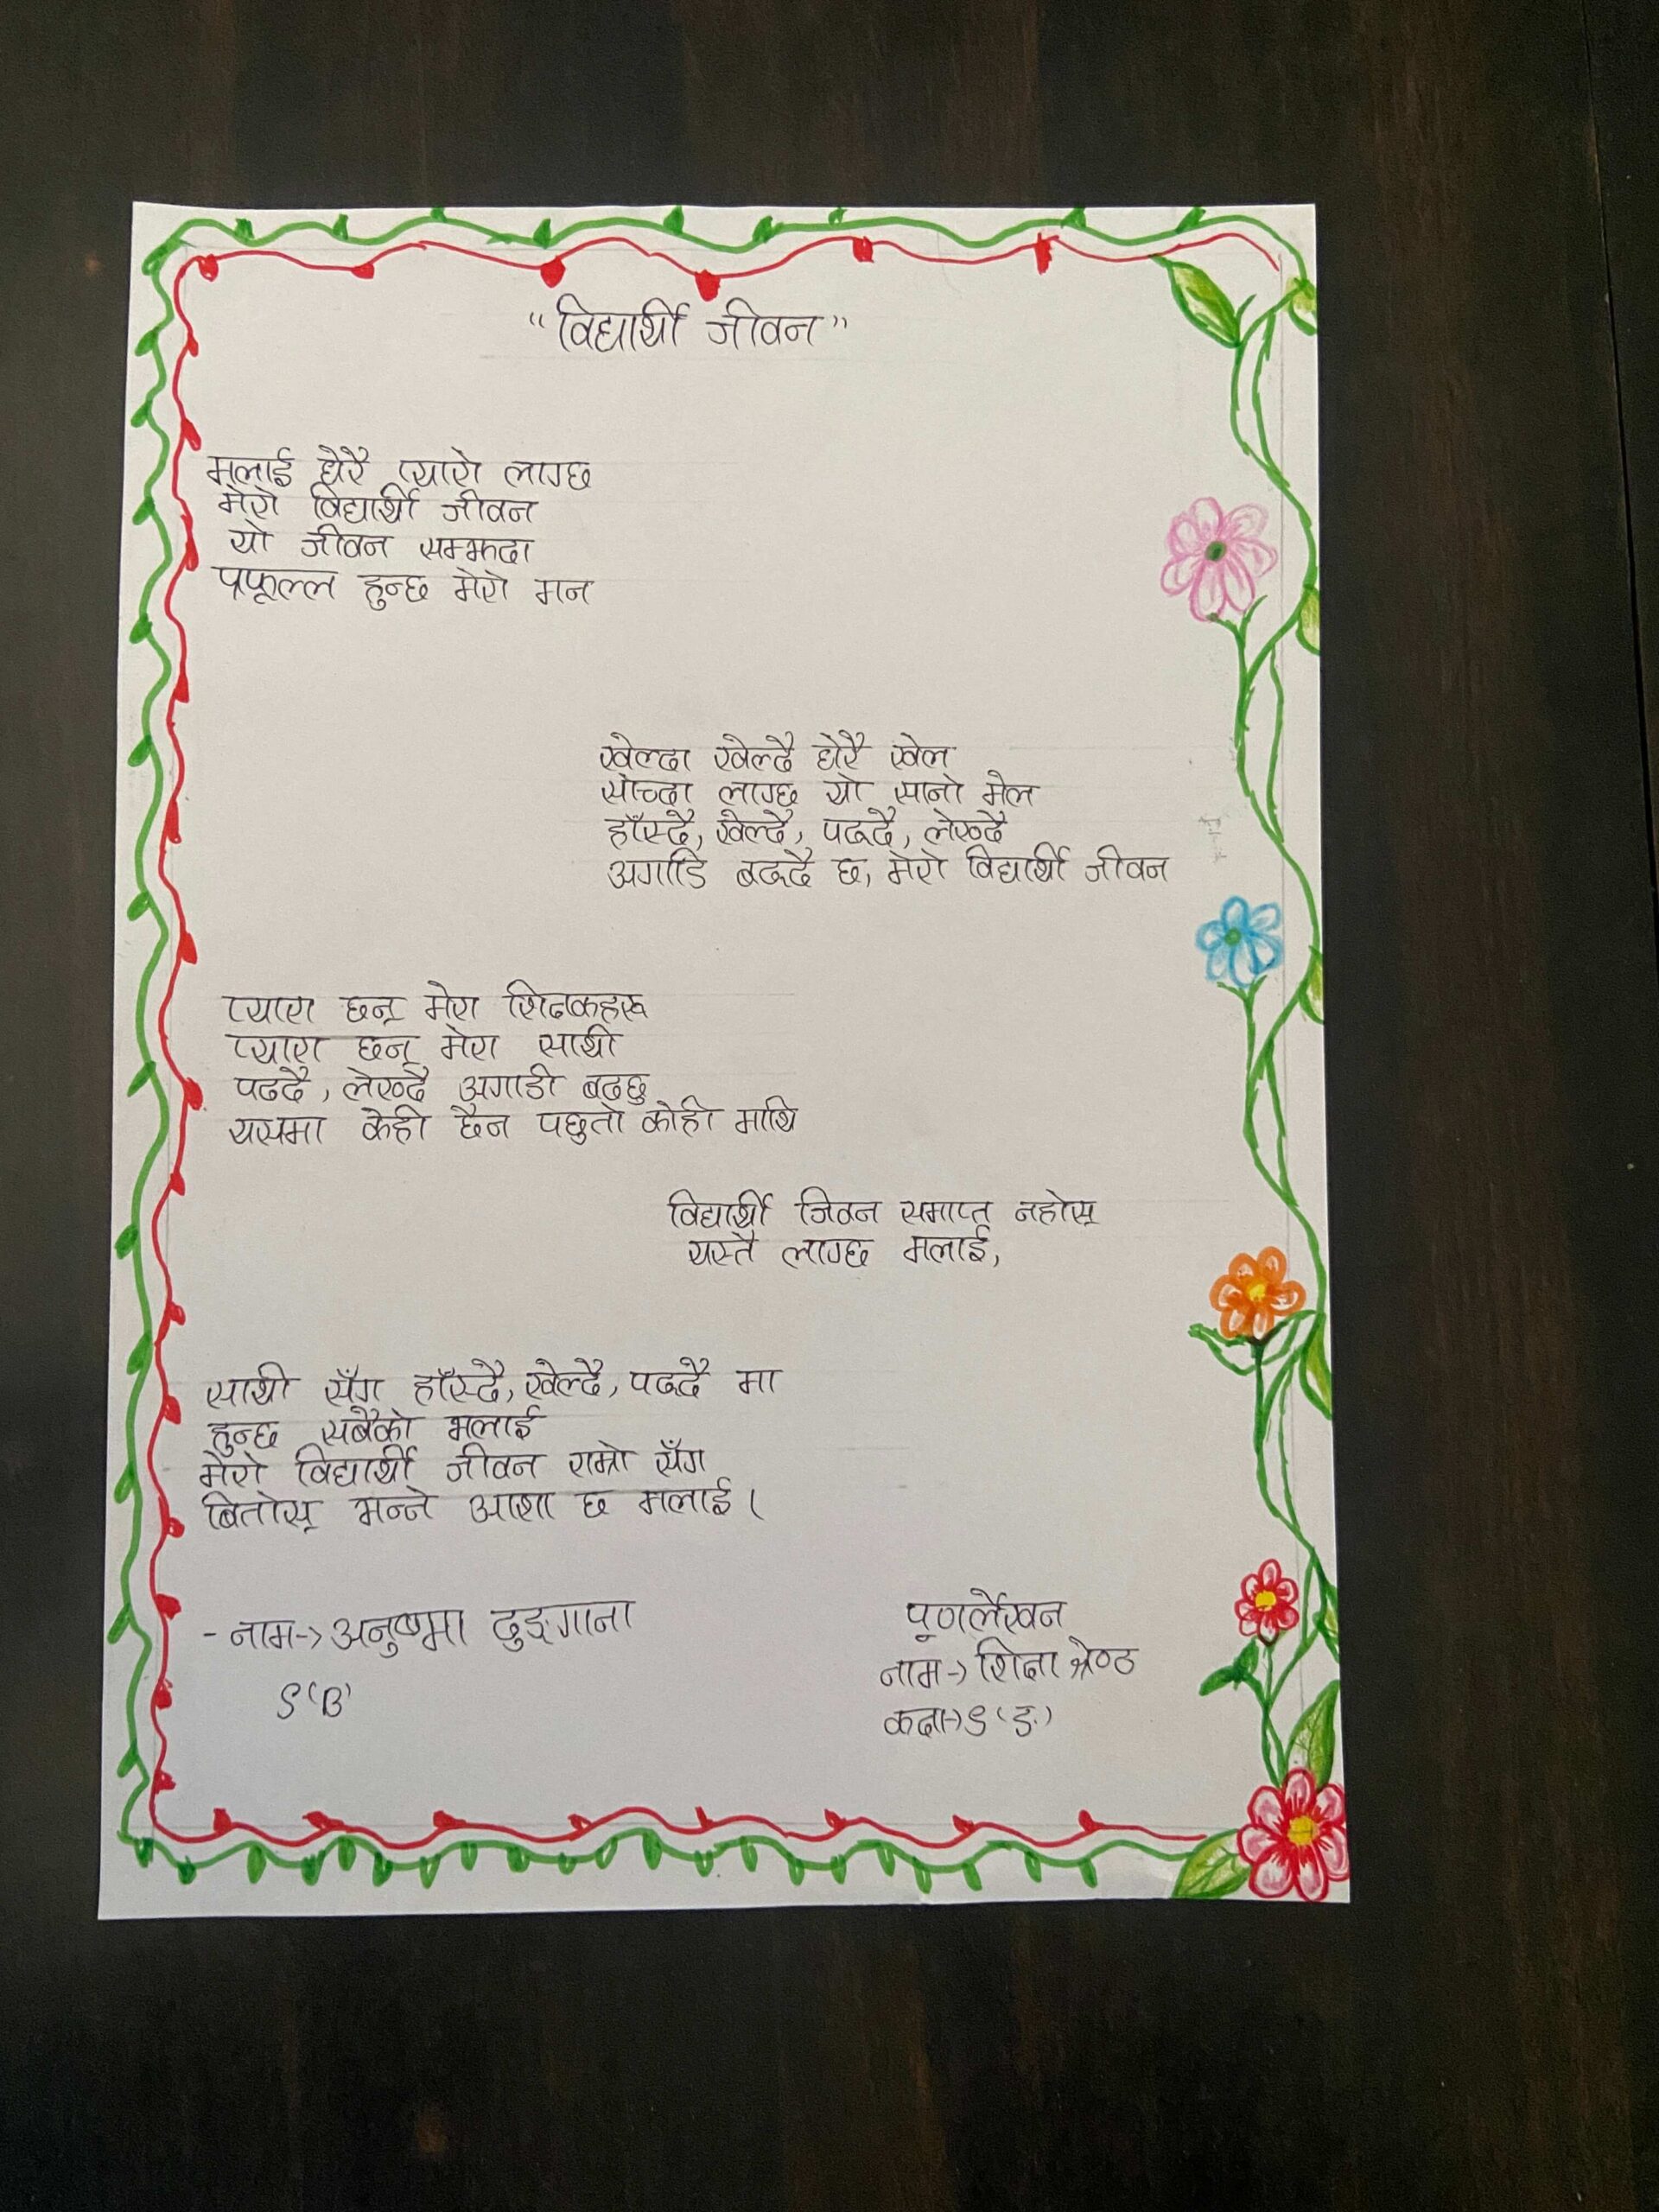 “विद्यार्थी जीवन”
मलाई धेरै प्यारो लाग्छ
मेरो विद्यार्थी जीवन
यो जीवन सम्झदा
प्रफूल्ल हुन्छ मेरो मन
खेल्दा खेल्दै धेरै खेल
सोच्दा लाग्छ यो सानो मेल
हाँस्दै, खेल्दै, पढ्दै, लेख्दै
अगाडि बढ्दै छ, मेरो विद्यार्थी जीवन
प्यारा छन् मेरा शिक्षकहरू
प्यारा छन् मेरा साथी
पढदै, लेख्दै अगाडी बढछु
यसमा केही छैन पछुतो कोही माथि
विद्यार्थी जिवन समाप्त नहोस्
यस्तै लाग्छ मलाई,
साथी सँग हाँस्दै, खेल्दै, पढ्दै मा
हुन्छ सबैको भलाई
मेरो विद्यार्थी जीवन राम्रो सँग
बितोस् भन्ने आशा छ मलाई।
- नाम→ अनुष्मा ढुङ्गाना
९‘B’
पूणर्लेखन
नाम→ शिक्षा श्रेष्ठ
कक्षा→९‘ङ’